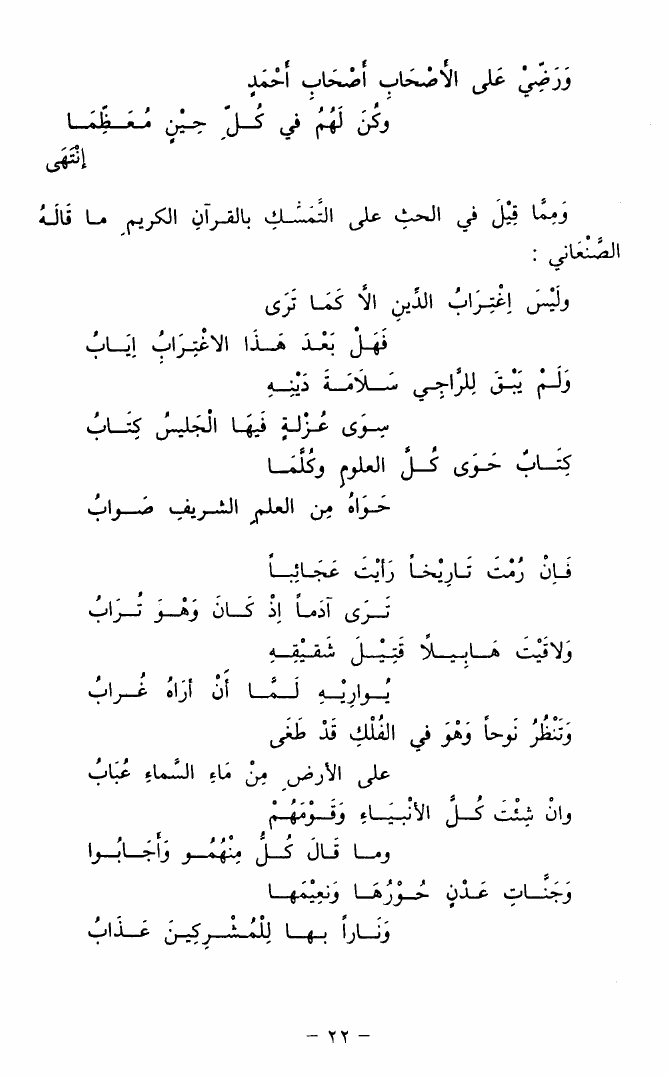 وَرَضِّيْ عَلى الأَصْحَابِ أَصْحَابِ أَحْمَدٍ
وكُنَ لَهُمُ في كُلِّ حِيْنٍ مُعَظِّمَا
إنْتَهَى
وَمِمَّا قِيْلَ في الحثِ على التَّمَسُكِ بالقرآنِ الكريم ما قَالَهُ
الصَّنْعَاني :
ولَيْسَ اغْتِرَابُ الدِّينِ الاَّ كَمَا تَرَى
فَهَلْ بَعْدَ هَذَا الاغْتِرَابِ إيَابُ
وَلَمْ يَبْقَ لِلرَّاجِي سَلامَةَ دَيْنِهِ
سِوَى عُزْلةٍ فَيهَا الْجَليسُ كِتَابُ
كِتَابٌ حَوَى كُلَّ العلومِ وكُلَّمَا
حَوَاهُ مِن العلمِ الشريفِ صَوابُ
فَإنْ رُمْتَ تَاريْخاً رَأيْتَ عَجَائِباً
تَرَى آدَماً إذْ كَانَ وَهْوَ تُرَابُ
وَلاقَيْتَ هَابِيلًا قَتِيْلَ شَقيْقِهِ
يُوارِيْهِ لَمَّا أنْ أرَاهُ غُرابُ
وَتَنْظُرُ نَوحاً وَهْوَ في الفُلْكِ قَدْ طَغَى
على الأرضِ مِنْ مَاءِ السَّماءِ عُبَابُ
وانْ شِئْتَ كُلَّ الأنْبيَاءِ وَقَوْمَهُمْ
وما قَالَ كُلٌّ مِنْهُمُو وَأَجَابُوا
وَجَنَّاتِ عَدْنٍ حُوْرُهَا وَنَعِيْمُها
وَنَاراً بها لِلْمُشْرِكِينَ عَذابُ
– ٢٢ –